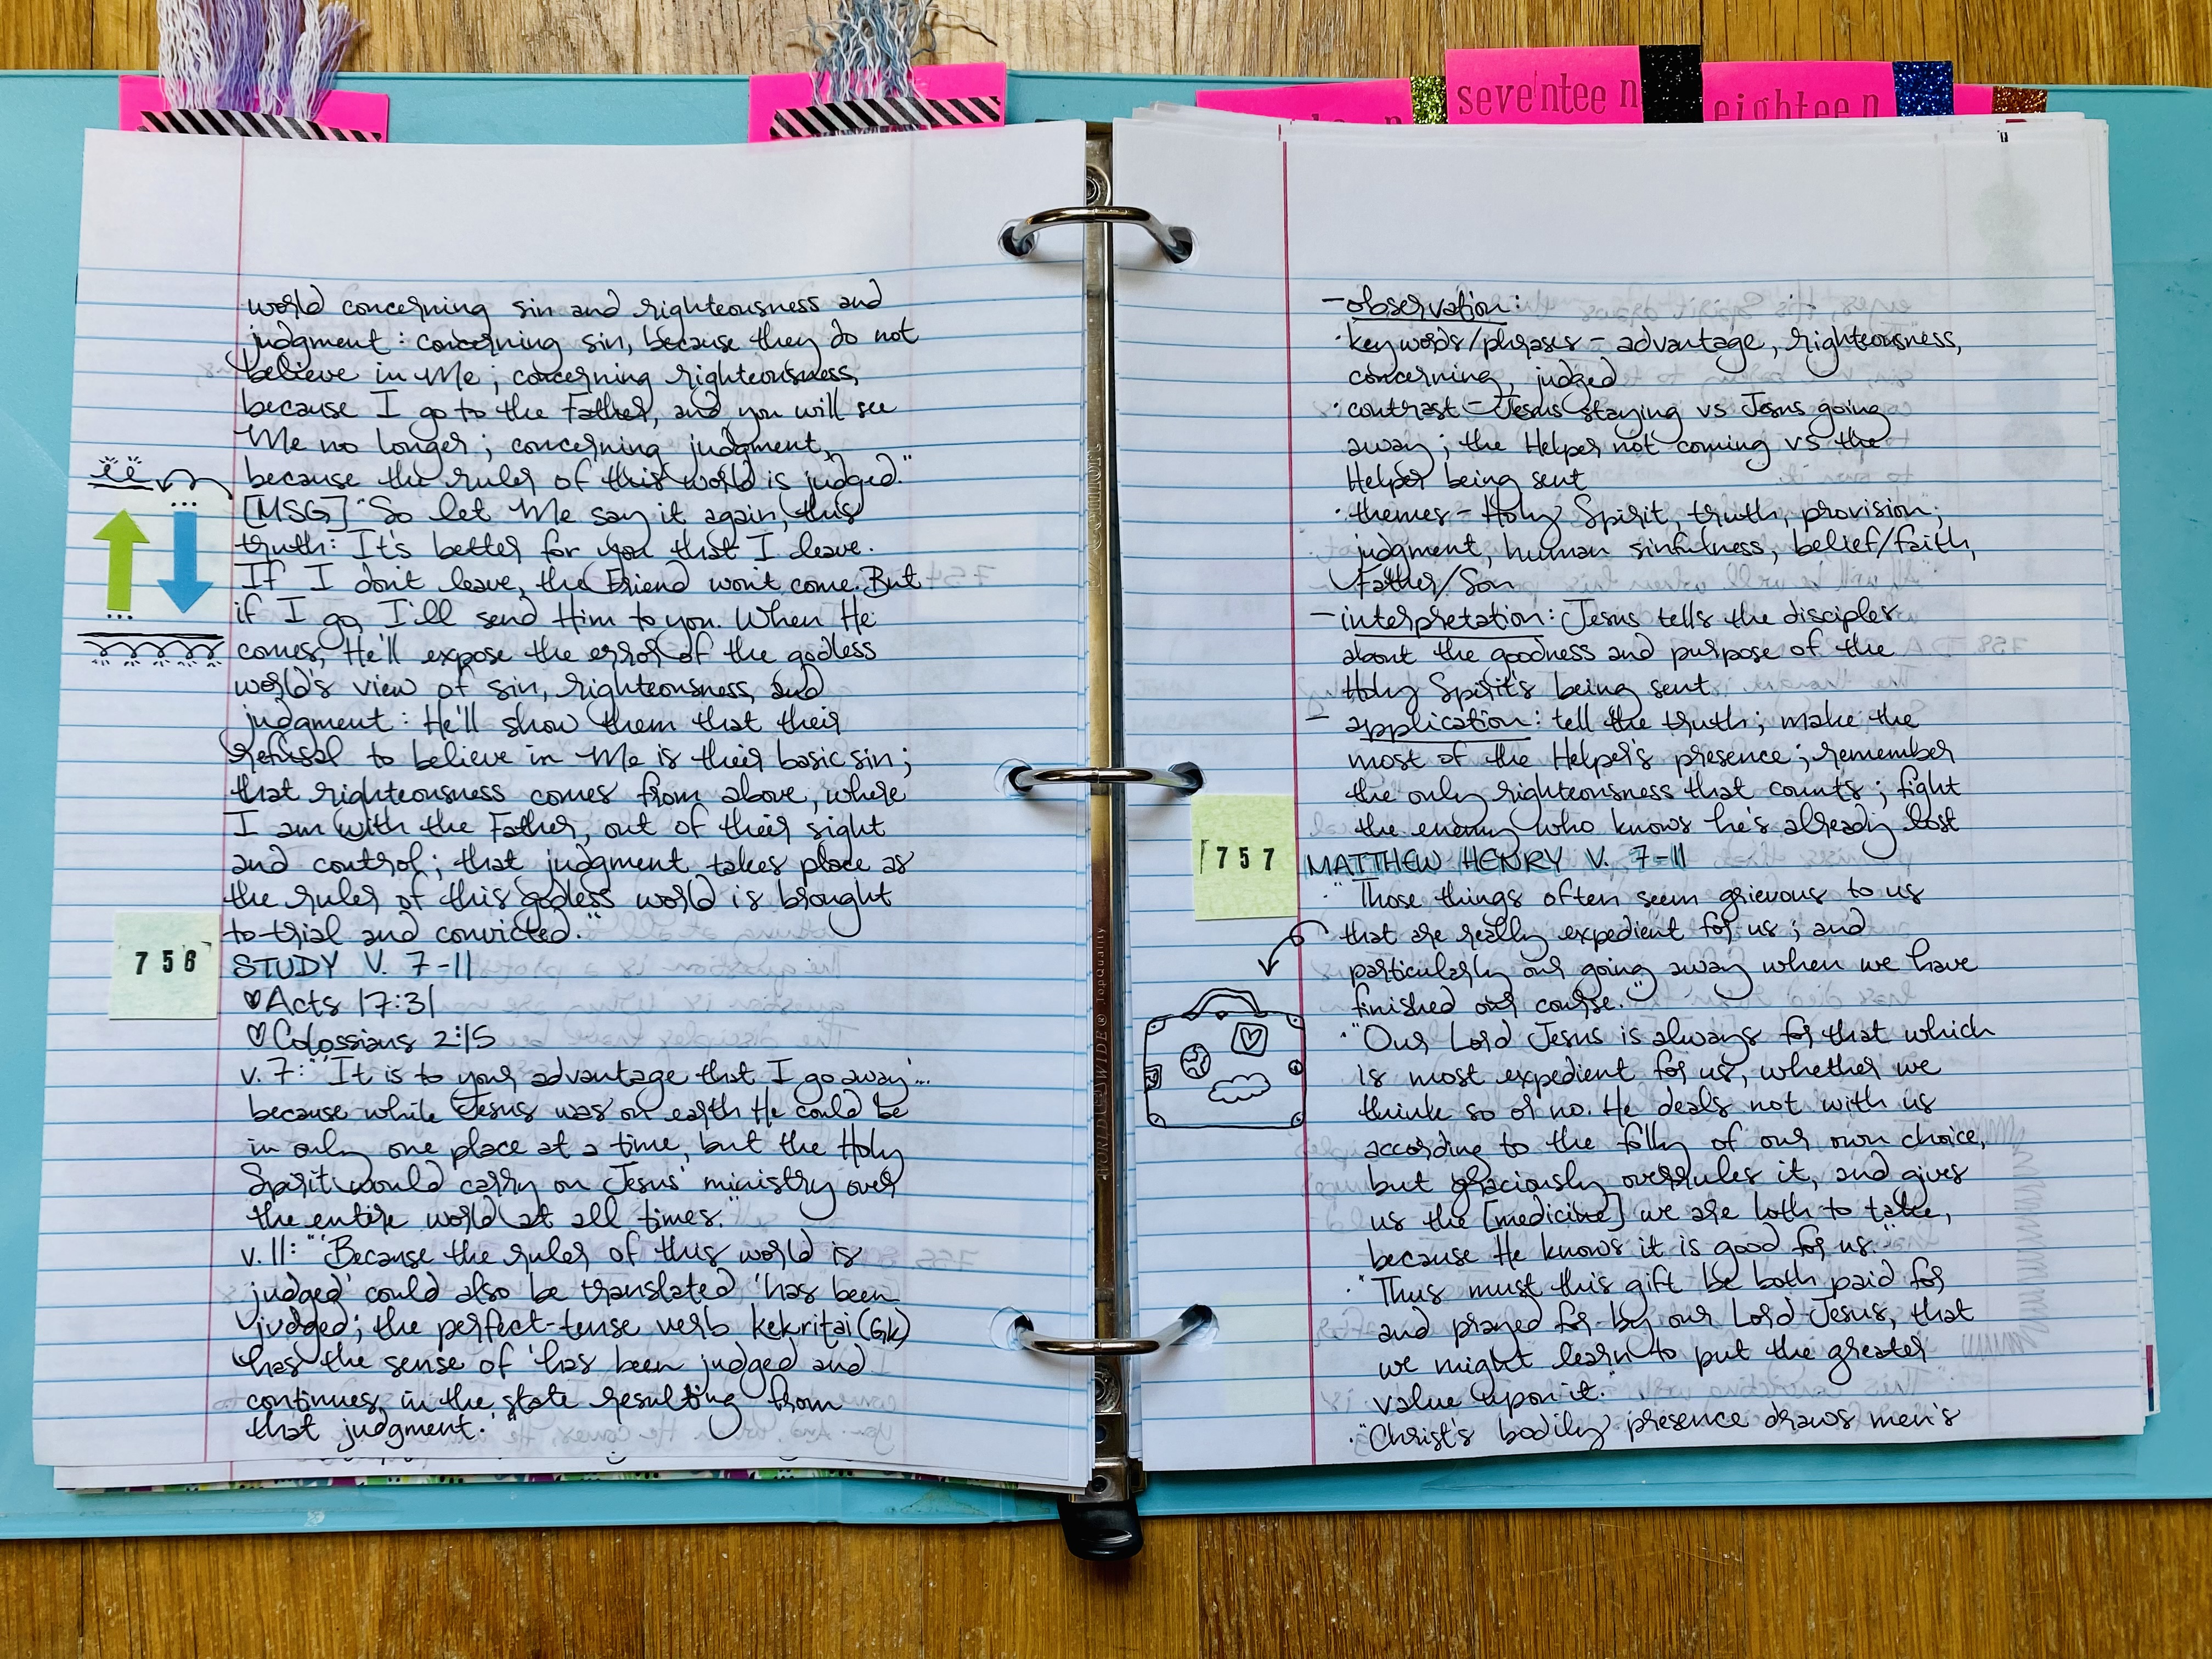 seventeen
eighteen
world concerning sin and righteousness and
judgment: concerning sin, because they do not
believe in Me; concerning righteousness,
because I go to the Father, and you will see
Me no longer; concerning judgment,
because the ruler of this world is judged."
[MSG] "So let Me say it again, this
truth: It's better for you that I leave.
If I don't leave, the Friend won't come. But
if I go, I'll send Him to you. When He
comes, He'll expose the error of the godless
world's view of sin, righteousness, and
judgment: He'll show them that their
refusal to believe in Me is their basic sin;
that righteousness comes from above, where
I am with the Father, out of their sight
and control; that judgment takes place as
the ruler of this godless world is brought
to trial and convicted."
756
STUDY V. 7-11
Acts 17:31
Colossians 2:15
v. 7: "'It is to your advantage that I go away'...
because while Jesus was on earth He could be
in only one place at a time, but the Holy
Spirit would carry on Jesus' ministry over
the entire world at all times."
v. 11: "'Because the ruler of this world is
judged' could also be translated 'has been
judged; the perfect-tense verb kekritai (Gk)
has the sense of 'has been judged and
continues in the state resulting from
that judgment.'"
- observation:
· key words/phrases - advantage, righteousness,
concerning, judged
· contrast - Jesus staying vs Jesus going
away; the Helper not coming vs the
Helper being sent
· themes - Holy Spirit, truth, provision,
judgment, human sinfulness, belief/faith,
Father/Son
- interpretation: Jesus tells the disciples
about the goodness and purpose of the
Holy Spirit's being sent
- application: tell the truth; make the
most of the Helper's presence; remember
the only righteousness that counts; fight
the enemy who knows he's already lost
757
MATTHEW HENRY V. 7-11
· "Those things often seem grievous to us
that are really expedient for us; and
particularly our going away when we have
finished our course."
· "Our Lord Jesus is always for that which
is most expedient for us, whether we
think so or no. He deals not with us
according to the folly of our own choice,
but graciously overrules it, and gives
us the [medicine] we are loth to take,
because He knows it is good for us."
· "Thus must this gift be both paid for
and prayed for by our Lord Jesus, that
we might learn to put the greater
value upon it."
· "Christ's bodily presence draws men's